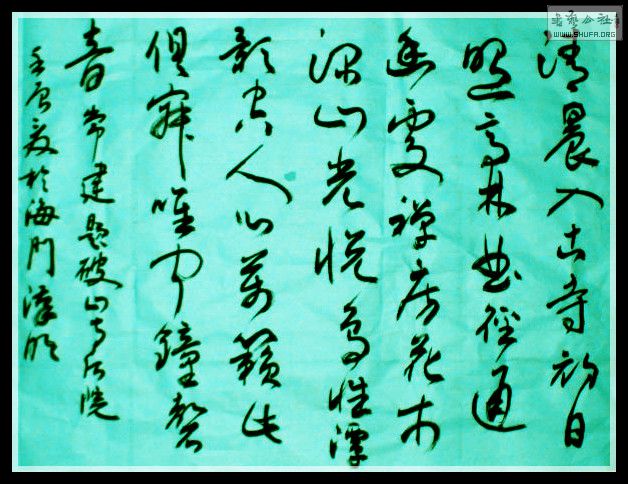 清晨入古寺初日
照高林曲径通
幽處禅房花木
深山光悦鸟性潭
影空人心萬籁此
俱寂唯闻鐘磬
音 常建题破山寺后院
壬辰夏於海门
书艺公社
WWW.SHUFA.ORG